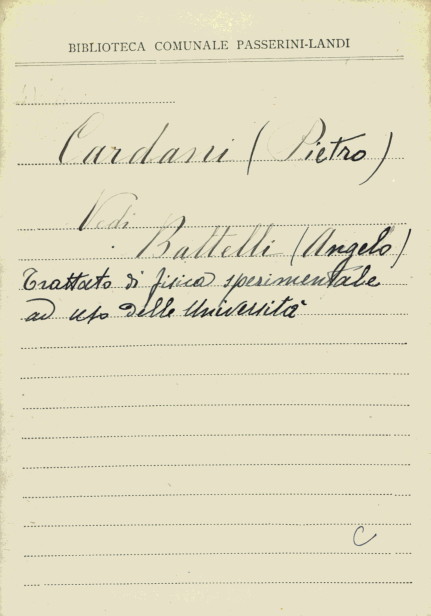 BIBLIOTECA COMUNALE PASSERINI-LANDI
Cardani (Pietro)
Vedi
Battelli (Angelo)
Trattato di fisica sperimentale
ad uso delle Università
C